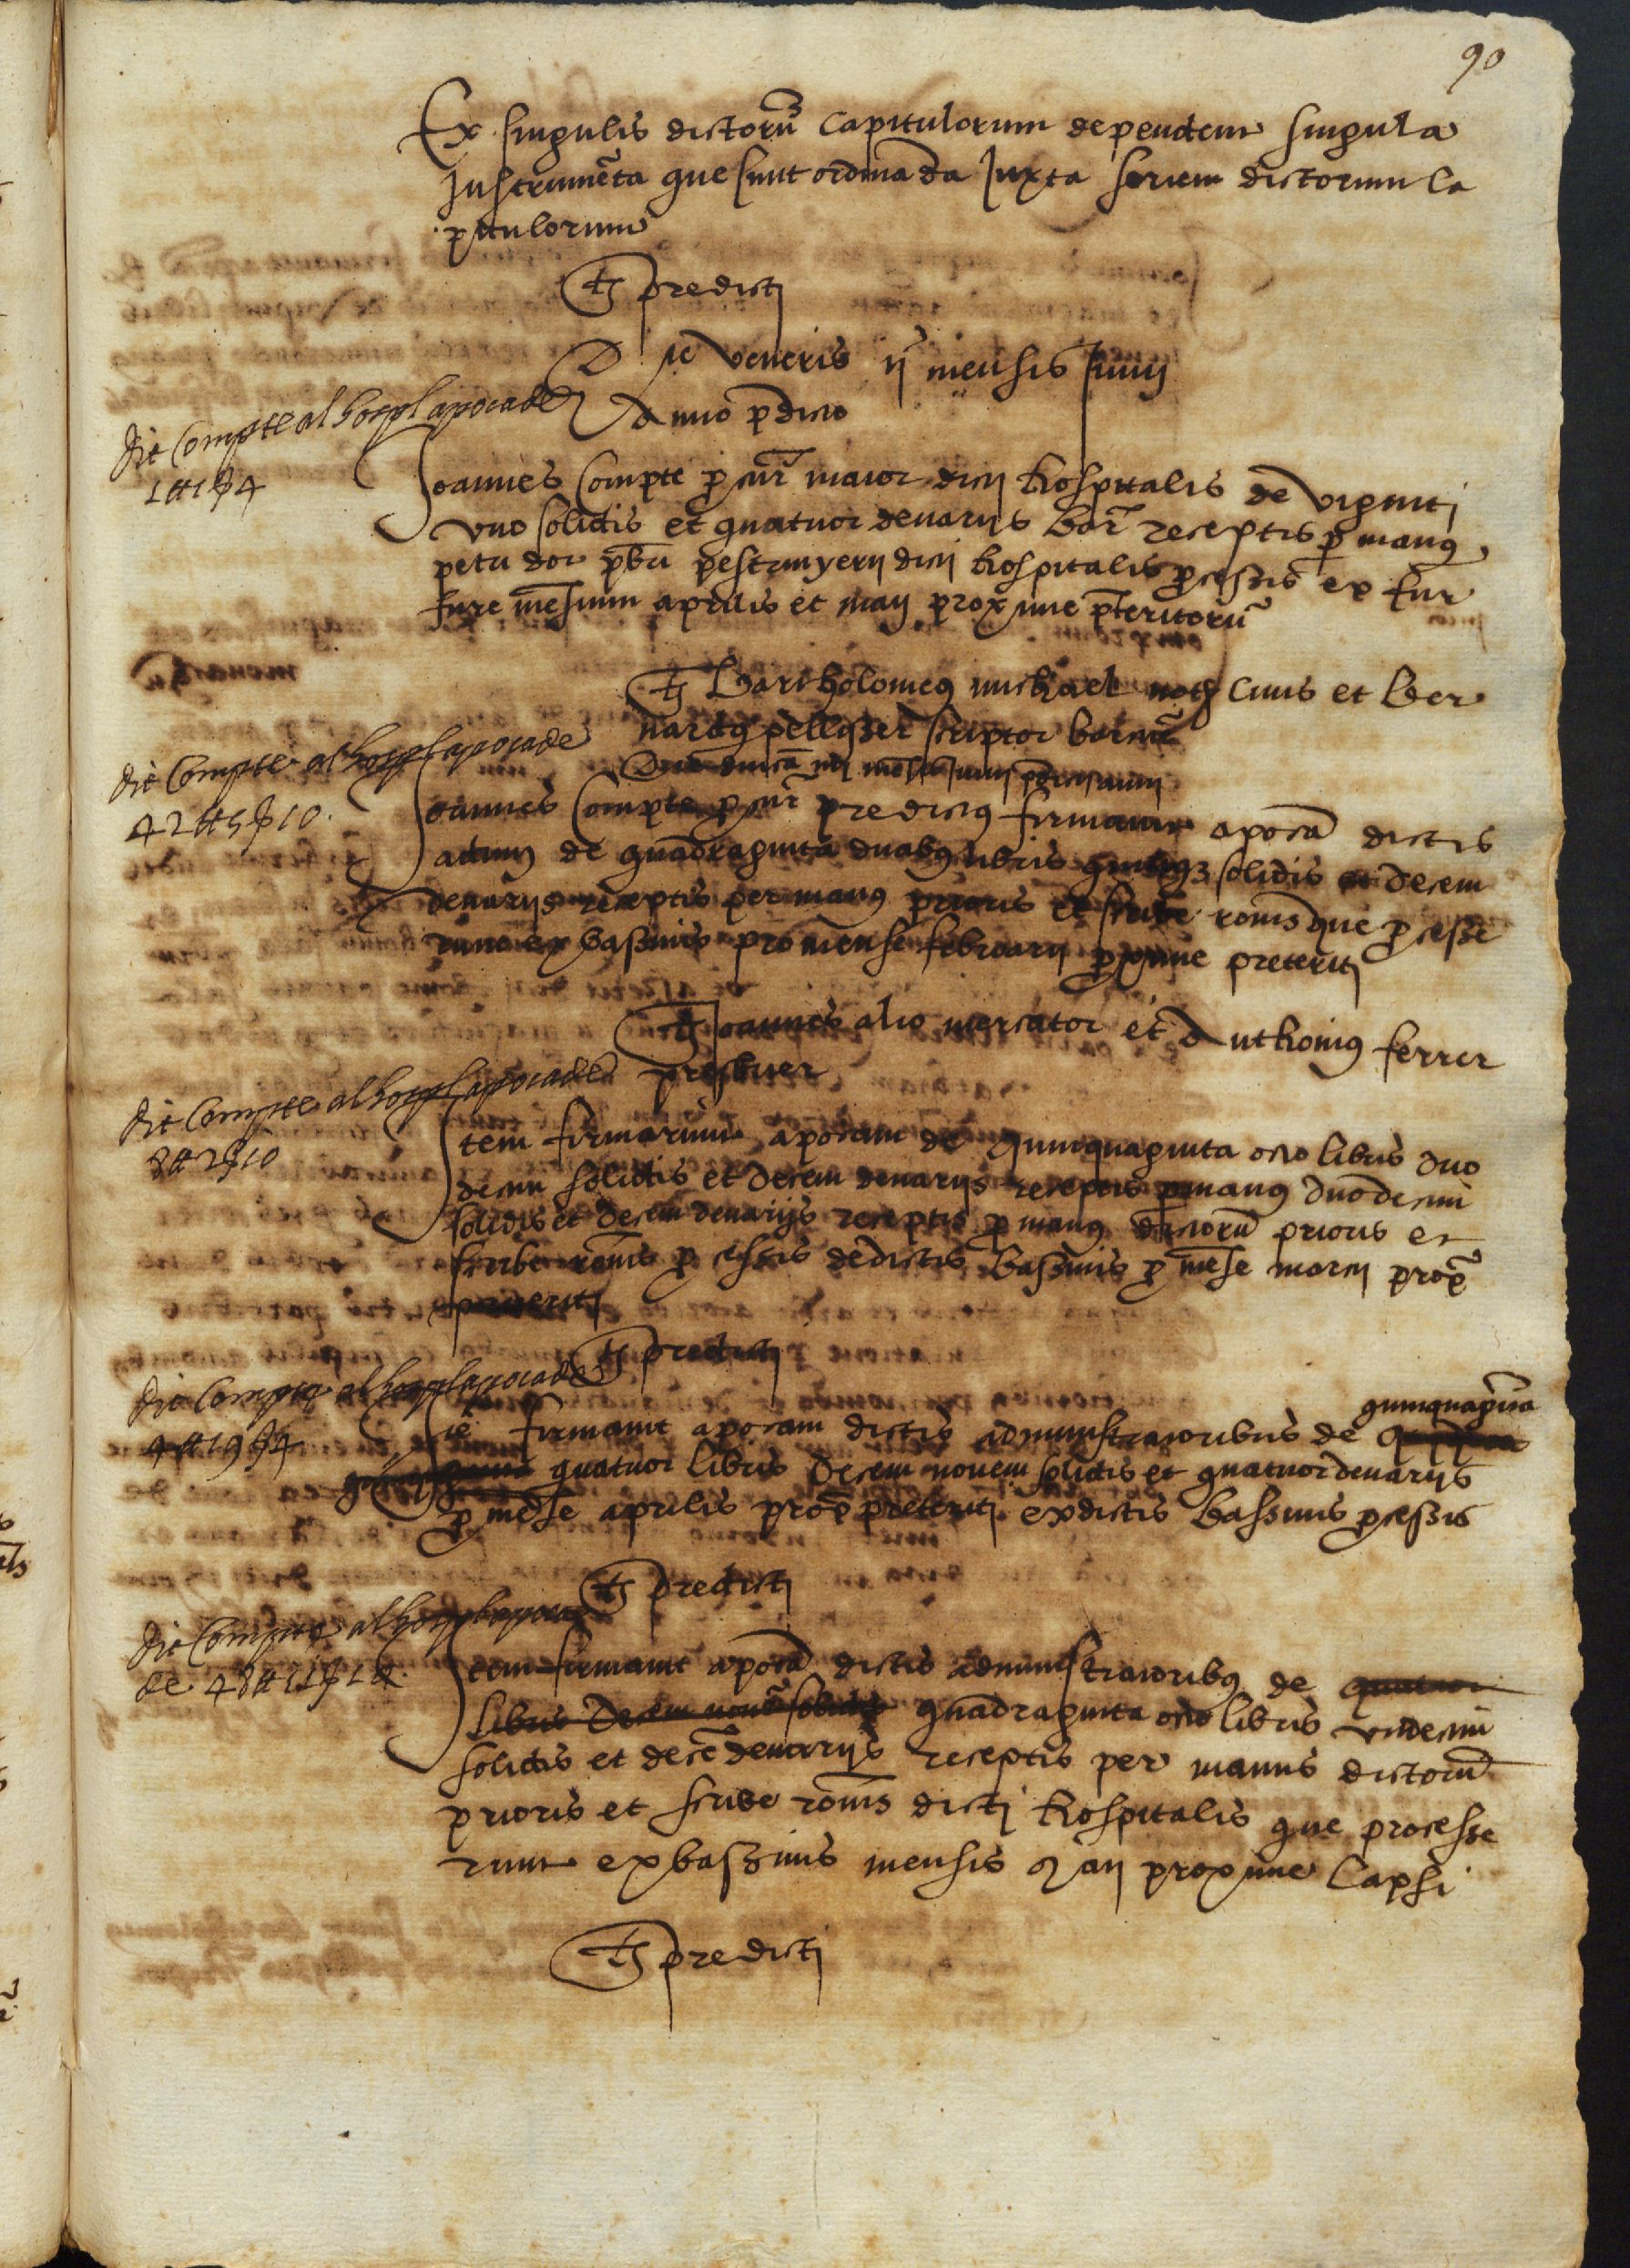 90
Ex singulis dictoru capitulorum dependent singula
Instrumeta que sunt ordinada Juxta seriem dictorum ca
pitulorum
Ts predictj
Die veneris ij mensis Junij
Anno pdicto
dit Compte al hospl apoca de
1 ₶ 1 ß 4
Joannes Compte p cur maior dicti hospitalis de vigintj
uno solidis et quatuor denarijs bar receptis p manus
petri dor pbri pestrinyerij dicti hospitalis pcessis ex fur
fure mesium aprilis et maij proxime pteritoru
Ts Bartholomeus michael not civis et Ber
nardus pellisser scriptor barne
dit Compte al hospl apoca de
42 ₶ 5 ß 10.
Joannes Compte p cur predictus firmavit apoca dictis
admin de quadraginta duabus libris quinque solidis et decem
denarijs receptis per manus prioris et scribe ronis que pcesse
runt ex bassinis pro mense februarij pxime preteritj
Ts Joannes alio mercator et Anthonius ferrer
presbiter
dit Compte al hospl apoca de
8 ₶ 2 ß 10
Item firmarunt apocam de quinquaginta octo libris duo
decim solidis et decem denarijs receptis p manus duodecim
solidis et decem denarijs receptis p manus dictoru prioris et
scribe ronis p cessis de dictis bassinis p mese marcij prox
preteritj
Ts predictj
dit Compte al hospl apoca de
4 ₶ 19 ß 4
quinquaginta
Ite firmavit apocam dictis administratoribus de
quatuor libris decem novem solidis et quatuor denarijs
p mese aprilis prox preteriti ex dictis bassinis pcessis
Ts predictj
dit Compte al hospl apoca
de 48 ₶ 11 ß 10.
Item firmavit apoca dictis administratoribus de quatuor
libris decem nove solidis quadraginta octo libris undecim
solidis et dece denarijs receptis per manus dictoru
prioris et scribe ronis dictj hospitalis que processe
runt ex bassinis mensis Maij proxime lapsi
Ts predictj